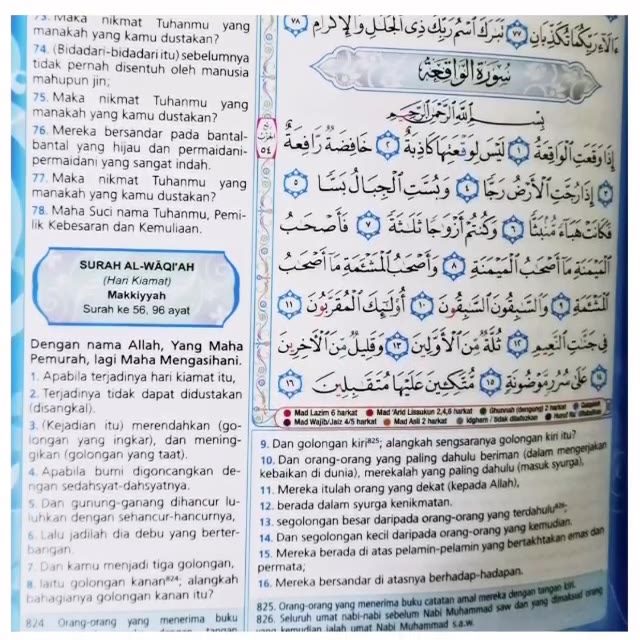 73. Maka nikmat Tuhanmu yang
manakah yang kamu dustakan?
74. (Bidadari-bidadari itu) sebelumnya
tidak pernah disentuh oleh manusia
mahupun jin;
75. Maka nikmat Tuhanmu yang
manakah yang kamu dustakan?
76. Mereka bersandar pada bantal-
bantal yang hijau dan permaidani-
permaidani yang sangat indah.
77. Maka nikmat Tuhanmu yang
manakah yang kamu dustakan?
78. Maha Suci nama Tuhanmu, Pemi-
lik Kebesaran dan Kemuliaan.
SURAH AL-WĀQI'AH
(Hari Kiamat)
Makkiyyah
Surah ke 56, 96 ayat
Dengan nama Allah, Yang Maha
Pemurah, lagi Maha Mengasihani.
1. Apabila terjadinya hari kiamat itu,
2. Terjadinya tidak dapat didustakan
(disangkal).
3. (Kejadian itu) merendahkan (go-
longan yang ingkar), dan mening-
gikan (golongan yang taat).
4. Apabila bumi digoncangkan de-
ngan sedahsyat-dahsyatnya.
5. Dan gunung-ganang dihancur lu-
luhkan dengan sehancur-hancurnya,
6. Lalu jadilah dia debu yang berter-
bangan.
7. Dan kamu menjadi tiga golongan,
8. Iaitu golongan kanan⁸²⁴; alangkah
bahagianya golongan kanan itu?
824 Orang-orang yang menerima buku
ءَالَآءِ رَبِّكُمَا تُكَذِّبَانِ ٧٧ تَبَٰرَكَ ٱسْمُ رَبِّكَ ذِى ٱلْجَلَٰلِ وَٱلْإِكْرَامِ ٧٨
سُورَةُ الْوَاقِعَةِ
بِسْمِ ٱللَّهِ ٱلرَّحْمَٰنِ ٱلرَّحِيمِ
إِذَا وَقَعَتِ ٱلْوَاقِعَةُ ١ لَيْسَ لِوَقْعَتِهَا كَاذِبَةٌ ٢ خَافِضَةٌ رَّافِعَةٌ
٣ إِذَا رُجَّتِ ٱلْأَرْضُ رَجًّا ٤ وَبُسَّتِ ٱلْجِبَالُ بَسًّا ٥
فَكَانَتْ هَبَآءً مُّنۢبَثًّا ٦ وَكُنتُمْ أَزْوَٰجًا ثَلَٰثَةً ٧ فَأَصْحَٰبُ
ٱلْمَيْمَنَةِ مَآ أَصْحَٰبُ ٱلْمَيْمَنَةِ ٨ وَأَصْحَٰبُ ٱلْمَشْـَٔمَةِ مَآ أَصْحَٰبُ
ٱلْمَشْـَٔمَةِ ٩ وَٱلسَّٰبِقُونَ ٱلسَّٰبِقُونَ ١٠ أُو۟لَٰٓئِكَ ٱلْمُقَرَّبُونَ ١١
فِى جَنَّٰتِ ٱلنَّعِيمِ ١٢ ثُلَّةٌ مِّنَ ٱلْأَوَّلِينَ ١٣ وَقَلِيلٌ مِّنَ ٱلْـَٔاخِرِينَ
١٤ عَلَىٰ سُرُرٍ مَّوْضُونَةٍ ١٥ مُّتَّكِـِٔينَ عَلَيْهَا مُتَقَٰبِلِينَ ١٦
Mad Lazim 6 harkat Mad 'Arid Lissukun 2,4,6 harkat Ghunnah (dengung) 2 harkat
Mad Wajib/Jaiz 4/5 harkat Mad Asli 2 harkat Idgham / tidak dilafazkan
9. Dan golongan kiri⁸²⁵; alangkah sengsaranya golongan kiri itu?
10. Dan orang-orang yang paling dahulu beriman (dalam mengerjakan
kebaikan di dunia), merekalah yang paling dahulu (masuk syurga),
11. Mereka itulah orang yang dekat (kepada Allah),
12. berada dalam syurga kenikmatan.
13. segolongan besar daripada orang-orang yang terdahulu⁸²⁶,
14. Dan segolongan kecil daripada orang-orang yang kemudian.
15. Mereka berada di atas pelamin-pelamin yang bertakhtakan emas dan
permata;
16. Mereka bersandar di atasnya berhadap-hadapan.
825. Orang-orang yang menerima buku catatan amal mereka dengan tangan kiri.
826. Seluruh umat nabi-nabi sebelum Nabi Muhammad saw dan yang dimaksud orang
yang kemudian ialah umat Nabi Muhammad s.a.w.